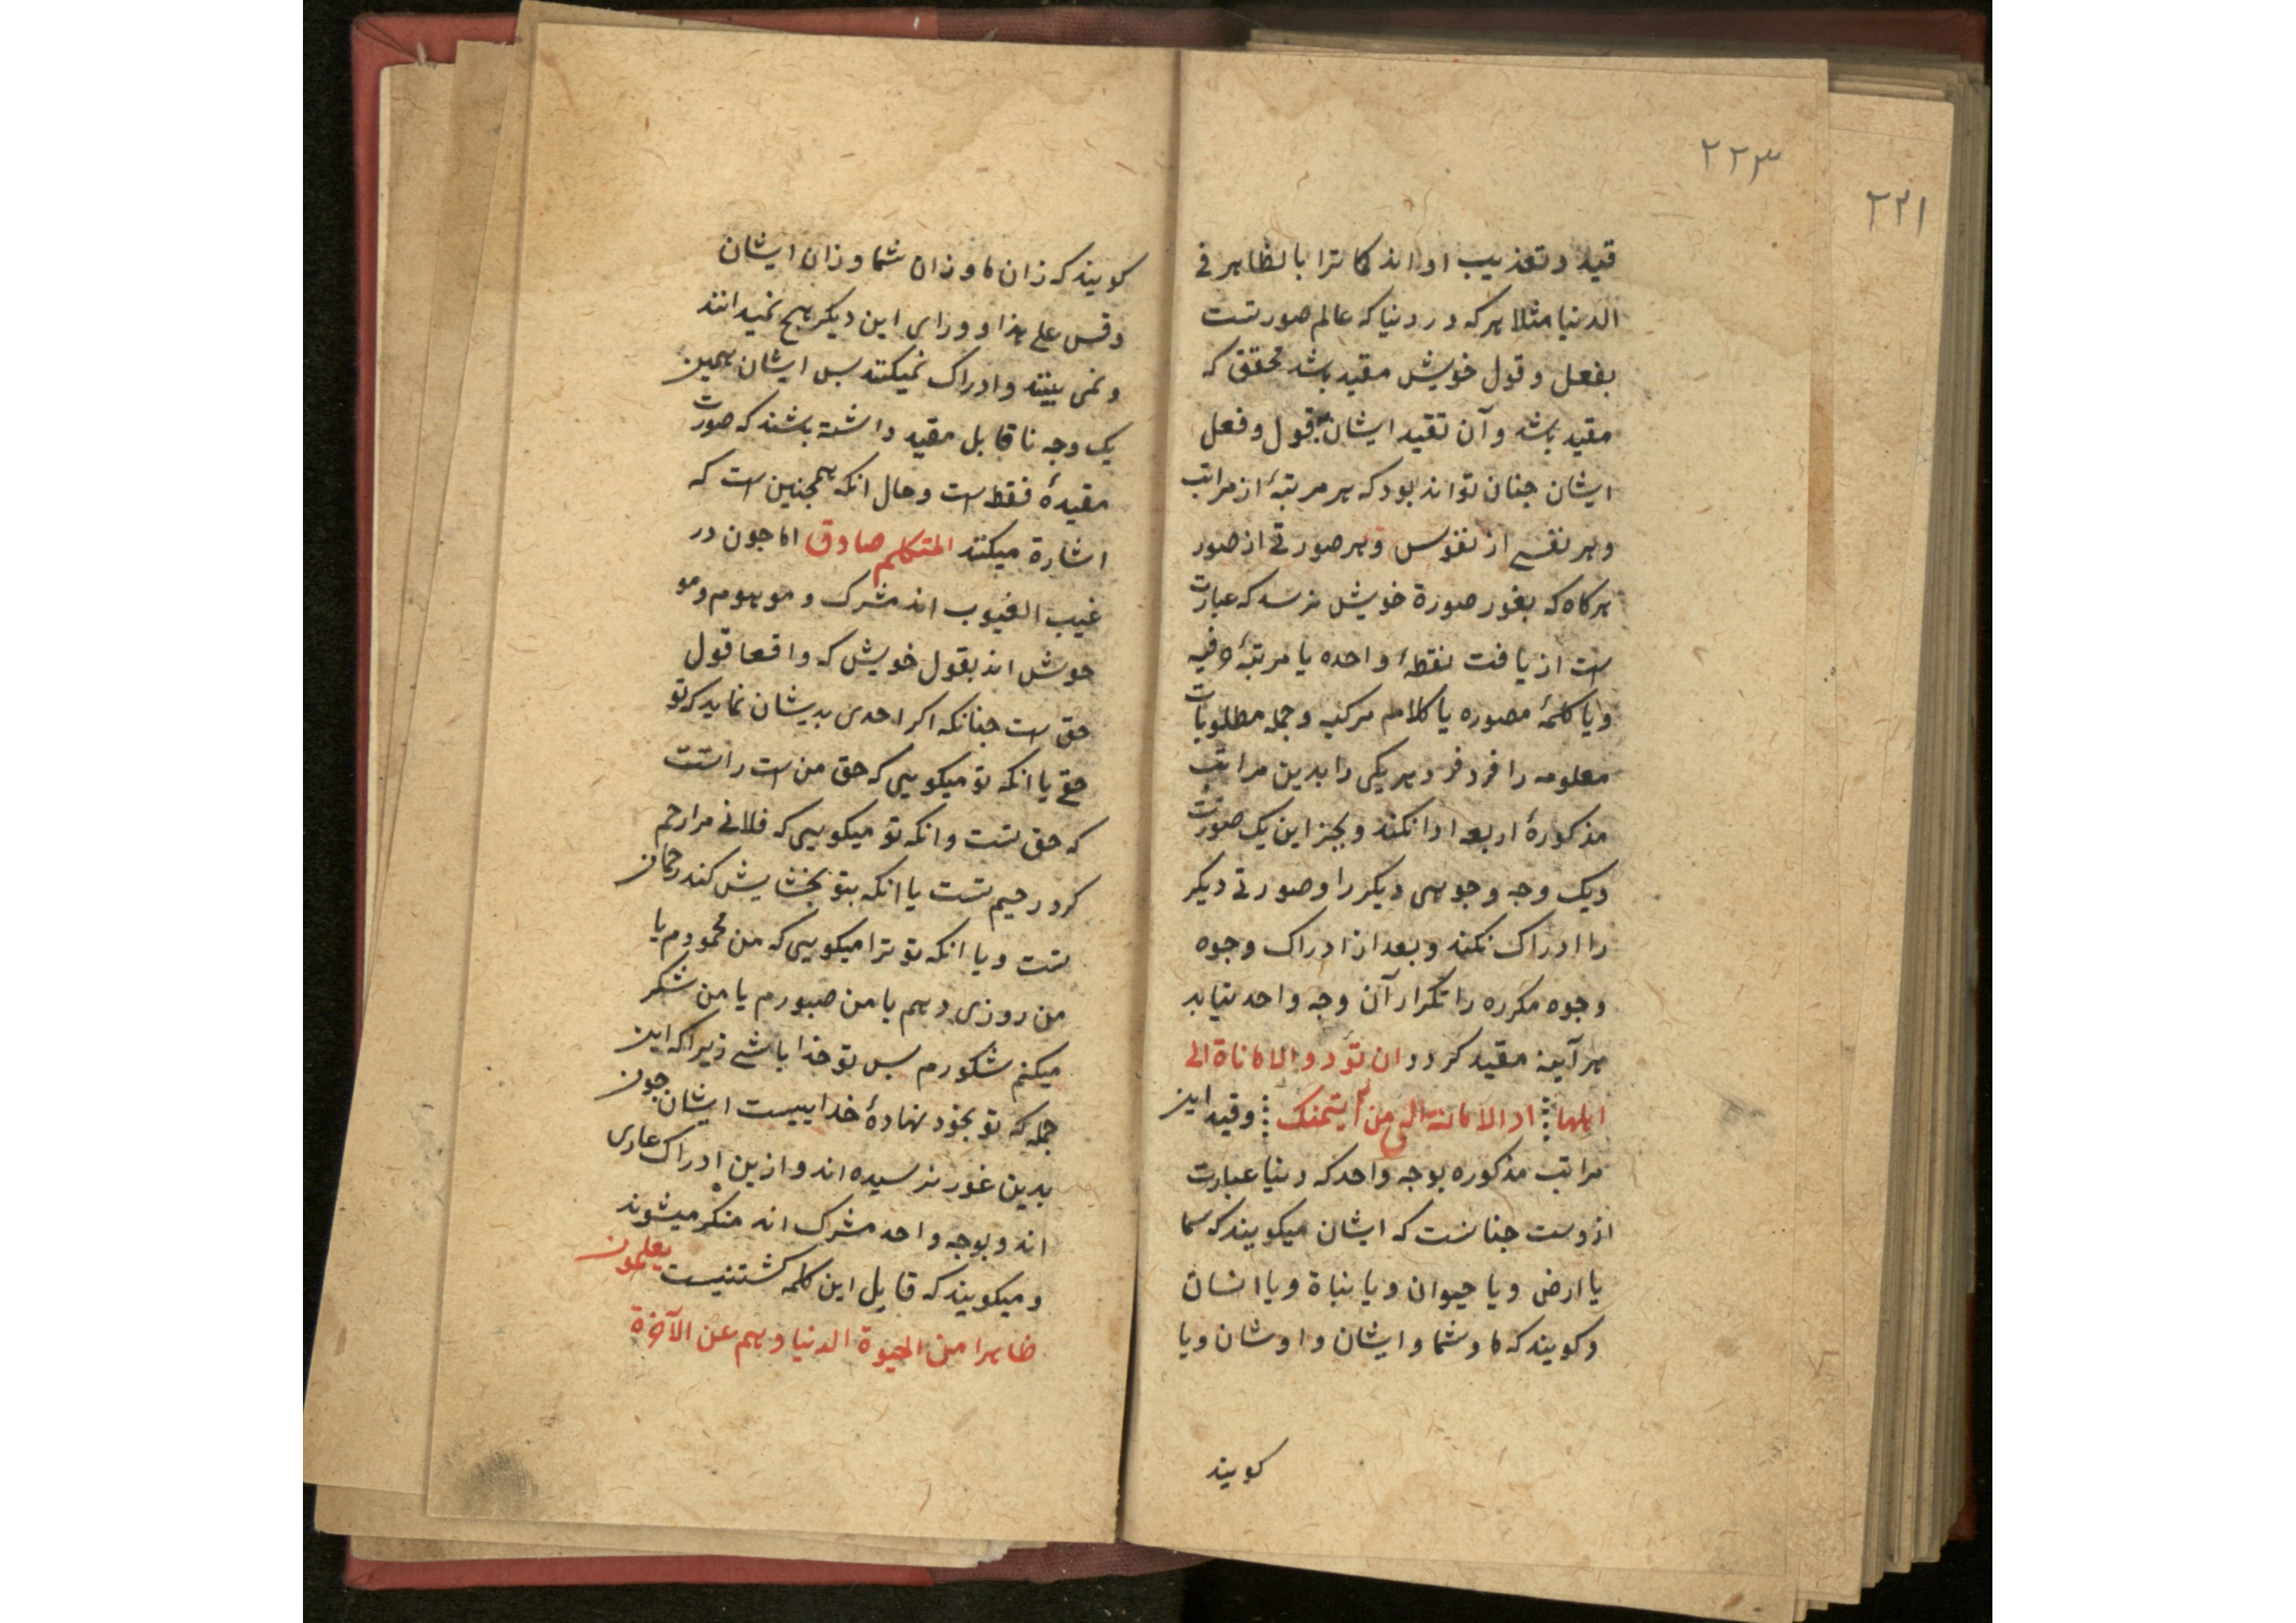 ۲۲۳
۲۲۱
قید و تعذیب او اند کما ترا بالظاهر فی
الدنیا مثلا هر که در دنیا که عالم صورتست
بفعل و قول خویش مقید باشد محقق که
مقید باشد و آن تقید ایشان بقول و فعل
ایشان جنان تواند بود که هر مرتبهٔ از مراتب
و هر نفسی از نفوس و هر صورتی از صور
هرکاه که بغور صورة خویش نرسد که عبارت
است از یافت نقطهٔ واحده یا مرتبهٔ
و یا کلمهٔ مصوره یا کلام مرکبه و جمله مطلوبات
معلومه را فرد فرد هر یکی را بدین مراتب
مذکورهٔ اربعه ادا نکند و بجز این یک صورت
و یک وجه وجوهی دیکر را و صورتی دیکر
را ادراک نکند و بعد از ادراک وجوه
وجوه مکرره را تکرار آن وجه واحد نیابد
هر آینه مقید کردد ان تؤدوا الامانات الی
اهلها اد الامانة الی من ایتمنک وقید این
مراتب مذکوره بوجه واحد که دنیا عبارت
ازوست جنانست که ایشان میکویند که سما
یا ارض و یا حیوان و یا نباة و یا انسان
و کویند که ما و شما و ایشان و اوشان و یا
کویند
کویند که زان ما و زان شما و زان ایشان
وقس علی هذا و ورای این دیکر هیج نمیدانند
و نمی بینند و ادراک نمیکنند بس ایشان همین
یک وجه ناقابل مقید داشته باشند که صورت
مقیدهٔ فقط است و حال انکه همجنین است که
اشارة میکنند المتکلم صادق اما جون در
غیب الغیوب اند مشرک و موهوم و مو
حوش اند بقول خویش که واقعا قول
حق است جنانکه اکر احدی بدیشان نماید که تو
حقی یا انکه تو میکویی که حق من است راستست
که حق تست و انکه تو میکویی که فلانی مرا رحم
کرد رحیم تست یا انکه بتو بخشایش کند رحمان
تست و یا انکه تو ترا میکویی که من محمودم یا
من روزی دهم یا من صبورم یا من شکر
میکنم شکورم بس تو خدا باشی زیرا که این
جمله که تو بخود نهادهٔ خداییست ایشان جون
بدین غور نرسیده اند و ازین ادراک عاری
اند و بوجه واحد مشرک اند منکر میشوند
و میکویند که قایل این کلمه کشتنیست یعلمون
ظاهرا من الحیوة الدنیا و هم عن الآخرة